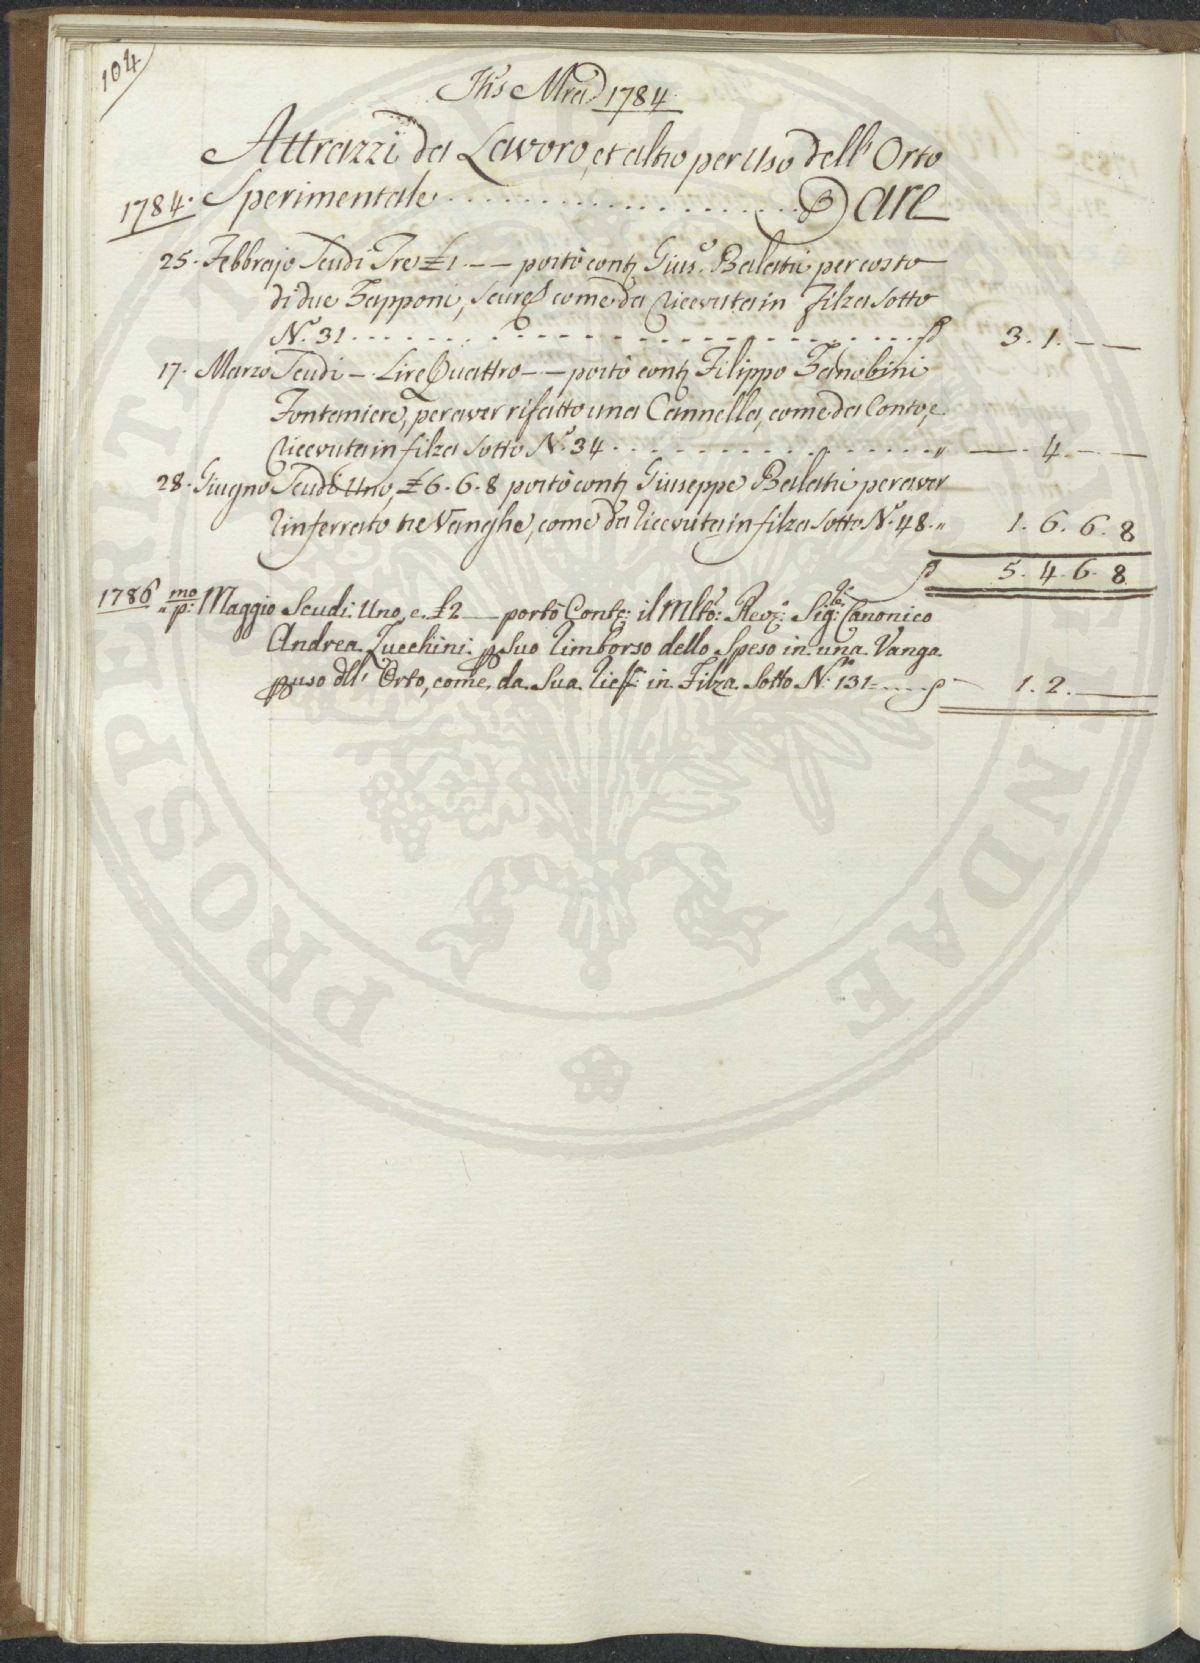 104
Jh's Mra 1784
Attrazzi da Lavoro, et altro per Uso dell' Orto
1784. Sperimentale . . . . . . . . . . . . . . . . Dare
25. Febbrajo Scudi Tre £1 — — portò contj Gius.e Balatri per costo
di due Zapponi, Scure, e come da Ricevuta in filza sotto
N.o 31 . . . . . . . . . . . . . . . . . . . . 3. 1. — —
17. Marzo Scudi — Lire Quattro — — portò contj Filippo Zanobini
Fontaniere, per aver rifatto una Cannella, come da Conto, e
Ricevuta in filza sotto N.o 34 . . . . . . . . . . . . . . " — 4. — —
28. Giugno Scudi Uno, £6. 6. 8 portò contj Giuseppe Balatri per aver
rinferrato tre Vanghe, come da ricevuta in filza sotto N.o 48. " 1. 6. 6. 8
5. 4. 6. 8
1786 p:mo Maggio Scudi Uno, e £2 — portò Contj: il Mlto: Revd: Sig:re Canonico
Andrea Zucchini p suo rimborso dello Speso in una Vanga
p uso dll' Orto, come da Sua Ric: in Filza Sotto N:o 131 — 1. 2. —
PROSPERITATI PUBLICAE AUGENDAE